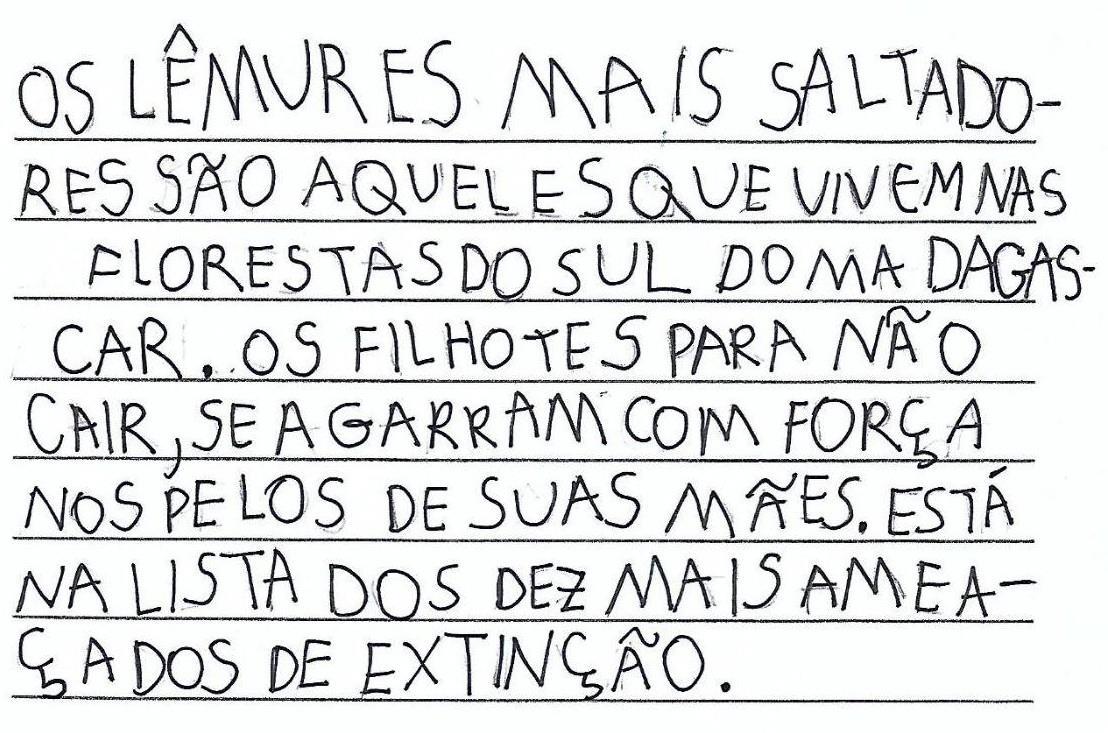 OS LÊMURES MAIS SALTADO-
RES SÃO AQUELES QUE VIVEM NAS
FLORESTAS DO SUL DO MADAGAS-
CAR. OS FILHOTES PARA NÃO
CAIR, SE AGARRAM COM FORÇA
NOS PELOS DE SUAS MÃES. ESTÁ
NA LISTA DOS DEZ MAIS AMEA-
ÇADOS DE EXTINÇÃO.